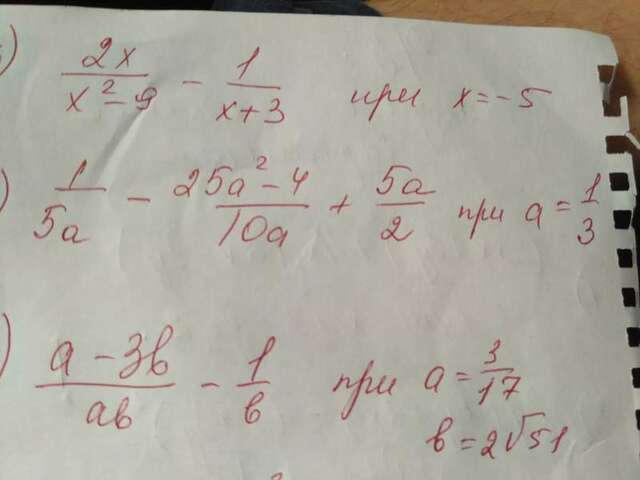 ) 2x/(x²-9) - 1/(x+3) при x=-5
) 1/(5a) - (25a²-4)/(10a) + 5a/2 при a=1/3
) (a-3b)/(ab) - 1/b при a=3/17
b=2√51